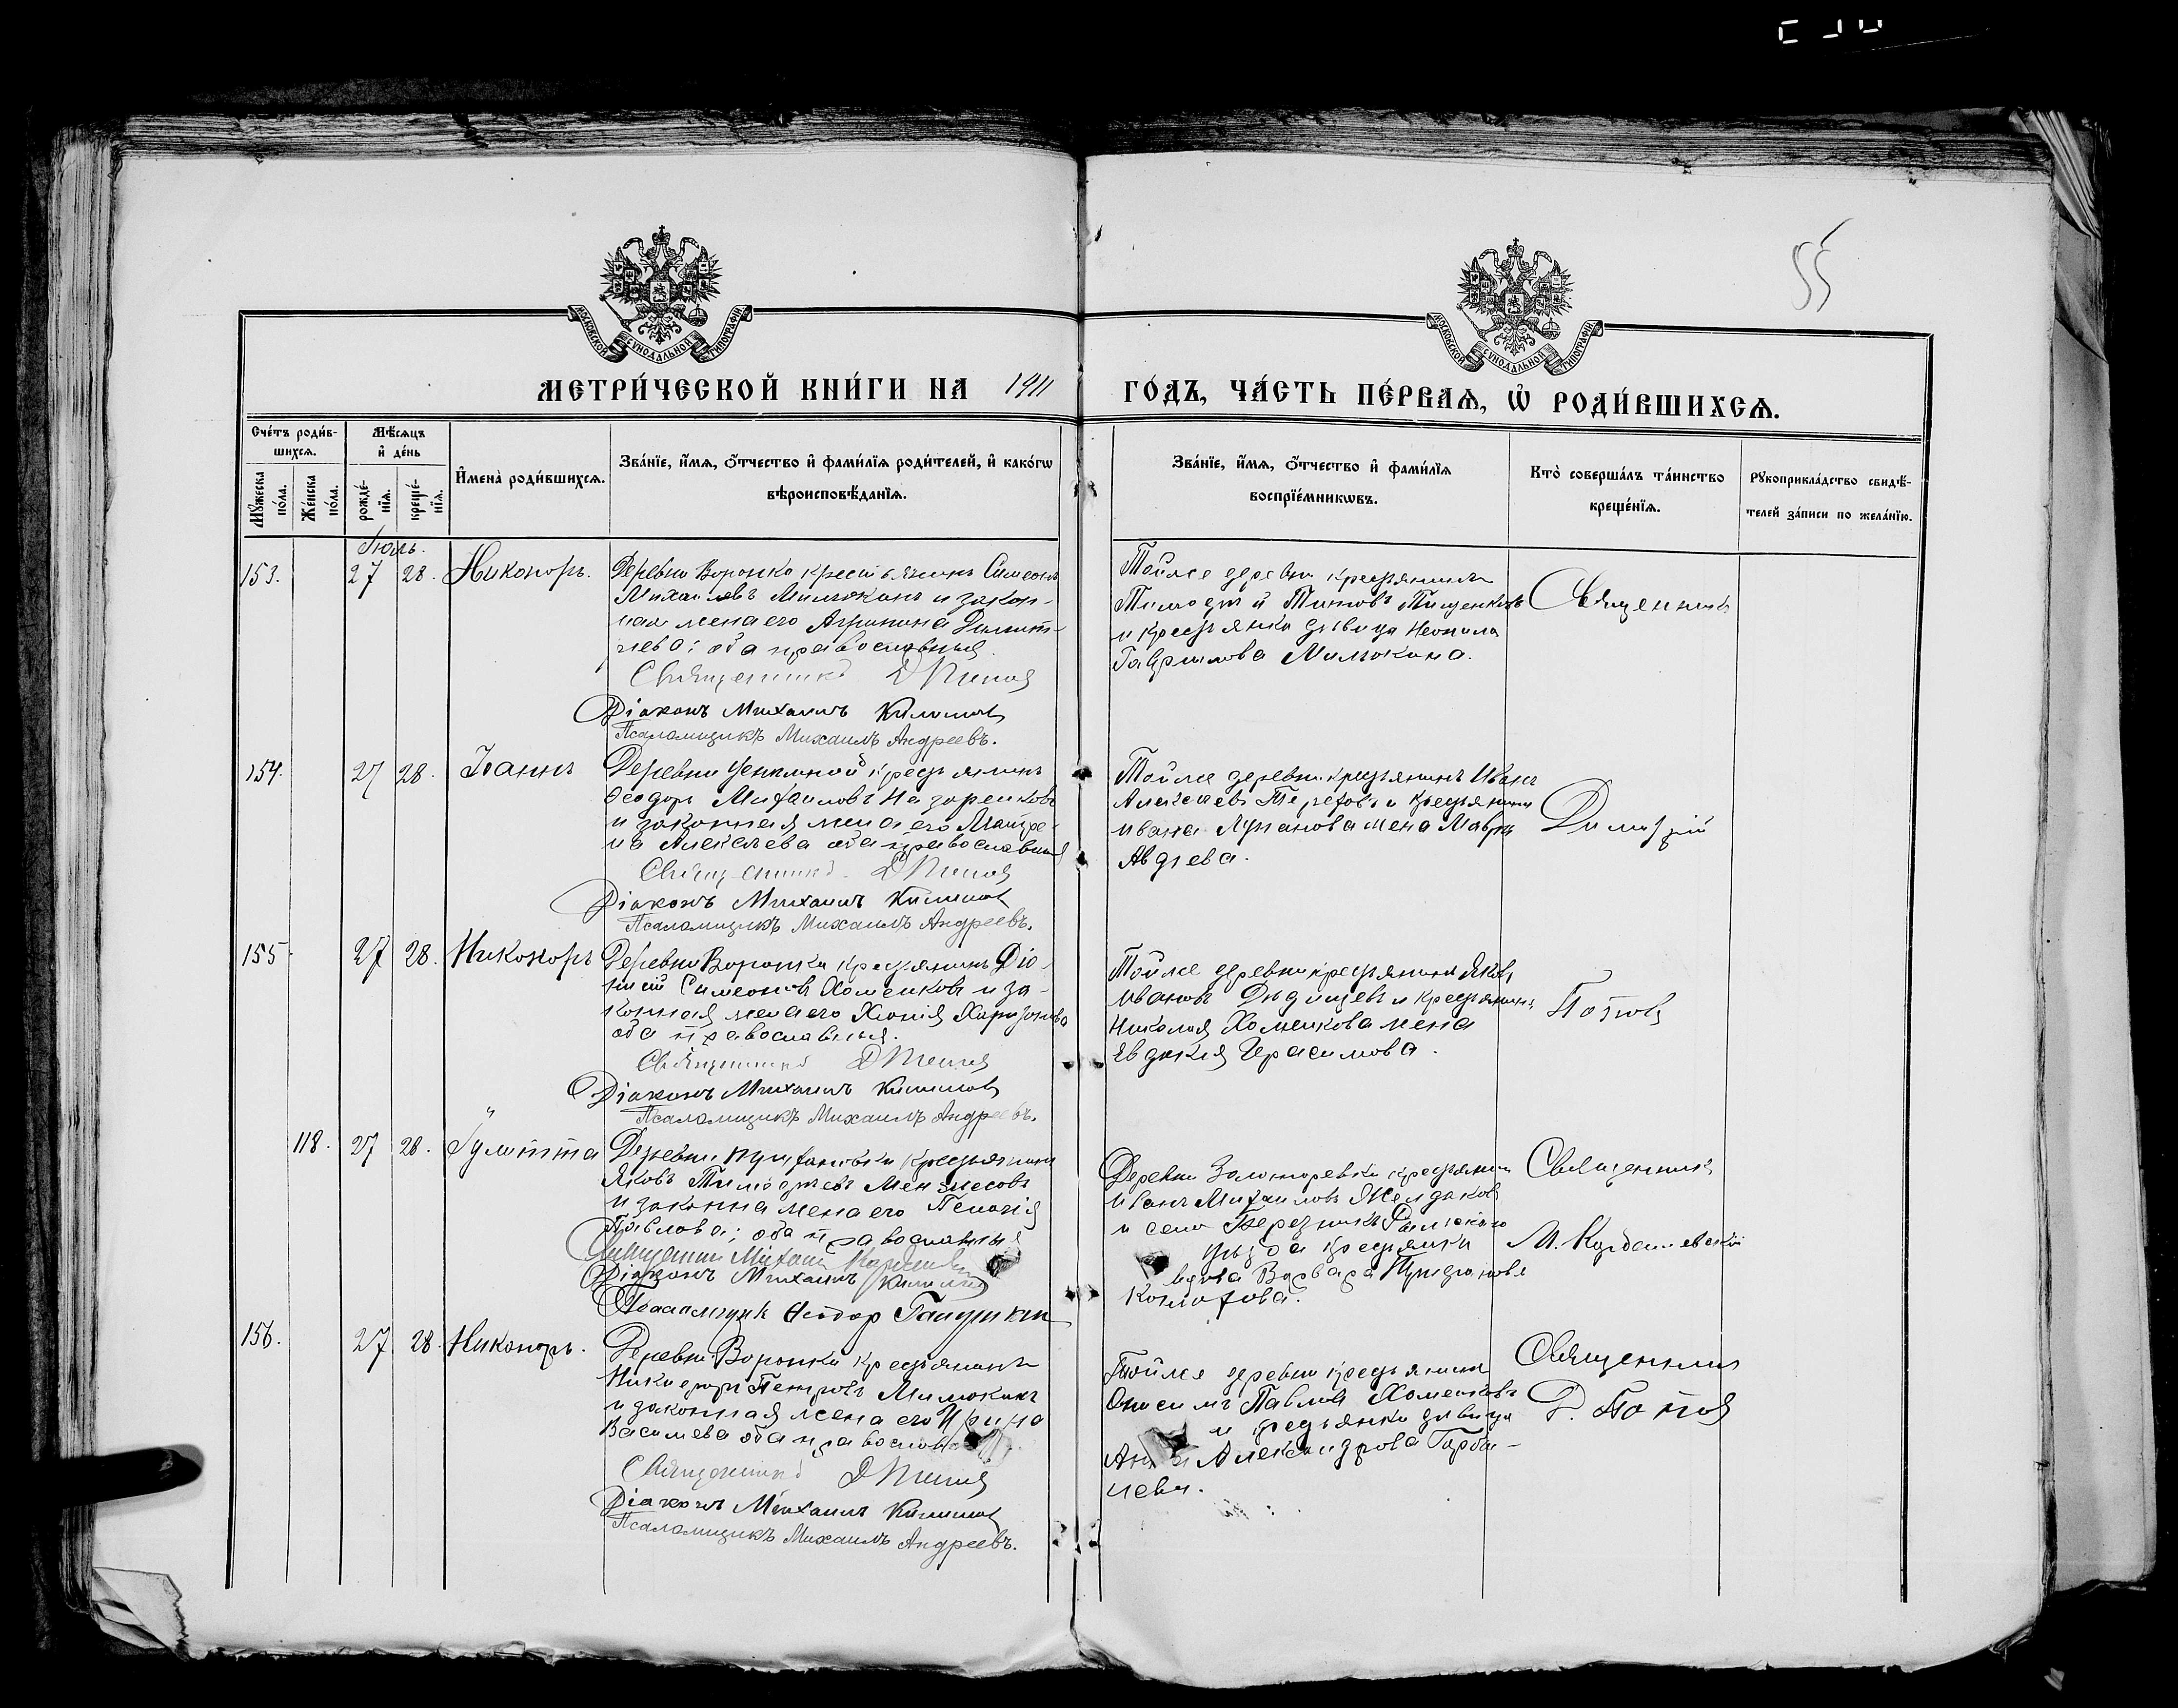 55
МОСКОВСКОЙ СѴНОДАЛЬНОЙ ТИПОГРАФІИ
МОСКОВСКОЙ СѴНОДАЛЬНОЙ ТИПОГРАФІИ
МЕТРИ́ЧЕСКОЙ КНИ́ГИ НА 1911 ГО́ДЪ, ЧА́СТЬ ПЕ́РВАѦ, Ѡ҆ РОДИ́ВШИХСѦ.
Сче́тъ роди́в-
шихсѧ.
Мꙋ́жеска
по́ла.
Же́нска
по́ла.
Мѣ́сѧцъ
и҆ де́нь
рожде́-
нїѧ.
креще́-
нїѧ.
И҆мена̀ роди́вшихсѧ.
Зва́нїе, и҆́мѧ, ѻ҆́тчество и҆ фами́лїѧ роди́телей, и҆ како́гѡ
вѣроисповѣ́данїѧ.
Зва́нїе, и҆́мѧ, ѻ҆́тчество и҆ фами́лїѧ
воспрїе́мникѡвъ.
Кто̀ соверша́лъ та́инство
креще́нїѧ.
Рꙋкоприкла́дство свидѣ́-
телей за́писи по жела́нїю.
Іюль.
153. 27 28. Никоноръ.
Деревни Воронка крестьянинъ Симеонъ
Михаиловъ Милюкинъ и закон-
ная жена его Агрипина Димит-
риева; оба православныя.
Священникъ Д Попов
Діаконъ Михаилъ
Псаломщикъ Михаилъ Андреевъ.
Тойже деревни крестьянинъ
Тимофей Титовъ Тищенковъ
и крестьянка дѣвица Неонила
Гаврилова Милюкина.
Священникъ
154. 27 28. Іоаннъ
Деревни крестьянинъ
Феодоръ Михаиловъ Назаренковъ
и законная жена его Матре-
на Алексеева оба православныя
Священникъ Д Попов
Діаконъ Михаилъ
Псаломщикъ Михаилъ Андреевъ.
Тойже деревни крестьянинъ Иванъ
Алексеевъ Терехов и крестьянина
Ивана жена Мавра
Авдеева.
Димитрій
155. 27 28. Никоноръ
Деревни Воронка крестьянинъ Діо-
нисій Симеоновъ Хоменковъ и за-
конная жена его Хіонія Харитонова
оба православныя.
Священникъ Д Попов
Діаконъ Михаилъ
Псаломщикъ Михаилъ Андреевъ.
Тойже деревни крестьянинъ Яковъ
Ивановъ и крестьянина
Николая Хоменкова жена
Евдокія Герасимова.
Поповъ
118. 27 28. Іулитта
Деревни крестьянинъ
Яковъ Тимофеевъ
и законна жена его
Павлова; оба православныя
Священник Михаил
Діаконъ Михаилъ
Псаломщик Феодор
Деревни крестьянин
Иванъ Михаиловъ Желудков
и села Березникъ Рыльскаго
уѣзда крестьянка
вдова Варвара
Священникъ
М.
156. 27 28. Никоноръ.
Деревни Воронка крестьянинъ
Никифоръ Петровъ Милюкинъ
и законная жена его Ирина
Васильева оба православ
Священникъ Д Попов
Діаконъ Михаилъ
Псаломщикъ Михаилъ Андреевъ.
Тойже деревни крестьянин
Онисимъ Павловъ Хоменковъ
и крестьянка дѣвица
Александрова
Священник
Д. Попов